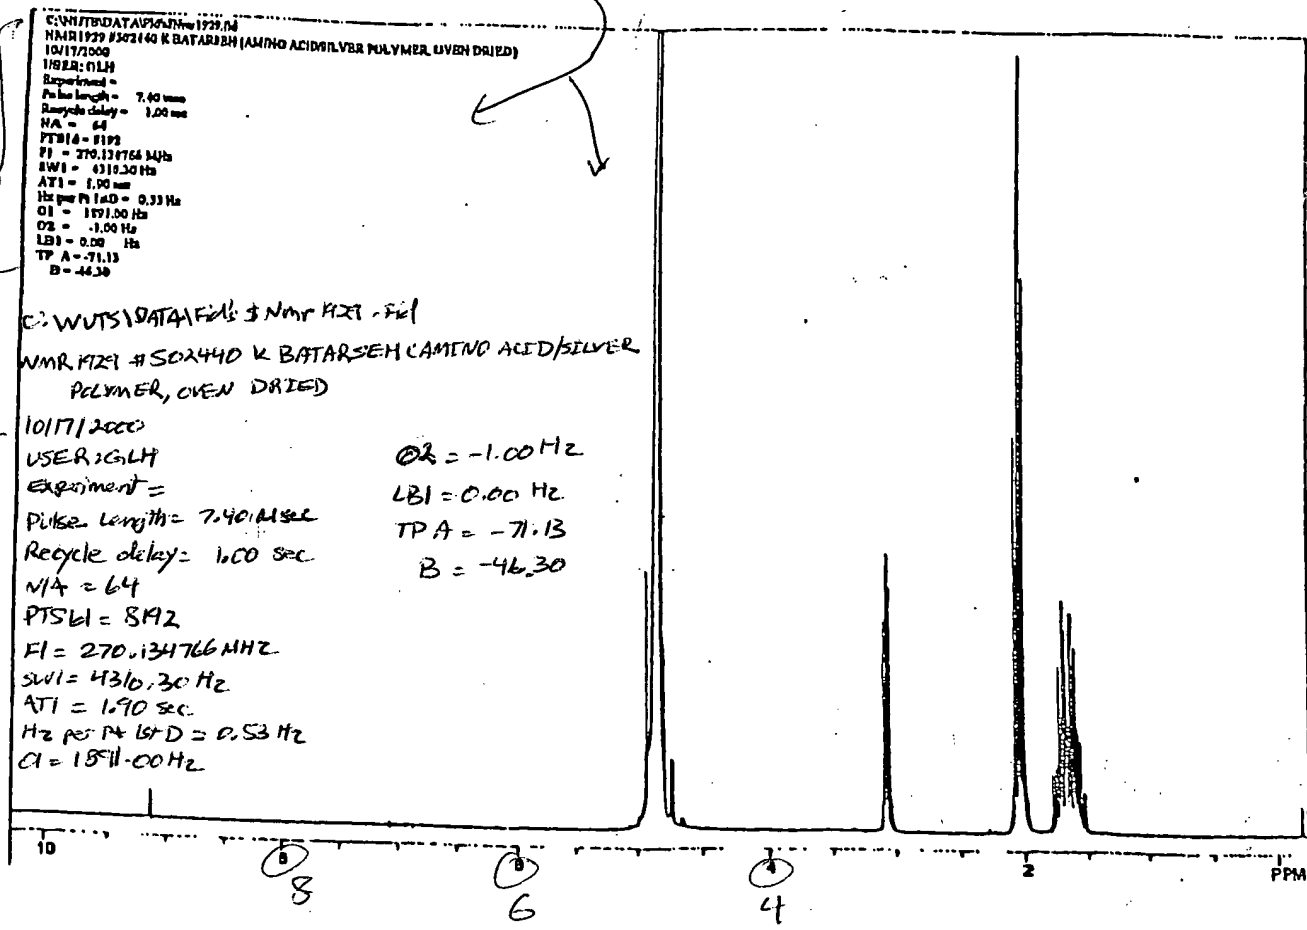 NMR1929 #502440 K BATARSEH (AMINO ACID/SILVER POLYMER, OVEN DRIED)
10/17/2000
USER: GLH
Experiment =
Pulse length = 7.40 usec
Recycle delay = 1.00 sec
NA = 64
PTS1d = 8192
F1 = 270.134766 MHz
SW1 = 4310.30 Hz
AT1 = 1.90 sec
Hz per Pt 1stD = 0.53 Hz
O1 = 1591.00 Hz
O2 = -1.00 Hz
LB1 = 0.00 Hz
TP A = -71.13
B = -46.30
C: WUTS\DATA\Fid's $ Nmr 1929 . Fid
NMR 1929 #502440 K BATARSEH (AMINO ACID/SILVER
POLYMER, OVEN DRIED
10/17/2000
USER: GLH
Experiment =
Pulse Length = 7.40 usec
Recycle delay = 1.00 sec
N/A = 64
PTS1d = 8192
F1 = 270.134766 MHZ
SW1 = 4310.30 Hz
AT1 = 1.90 sec
Hz per Pt 1st D = 0.53 Hz
O1 = 1591.00 Hz
O2 = -1.00 Hz
LB1 = 0.00 Hz
TP A = -71.13
B = -46.30
10 8 6 4 2 PPM
8 6 4